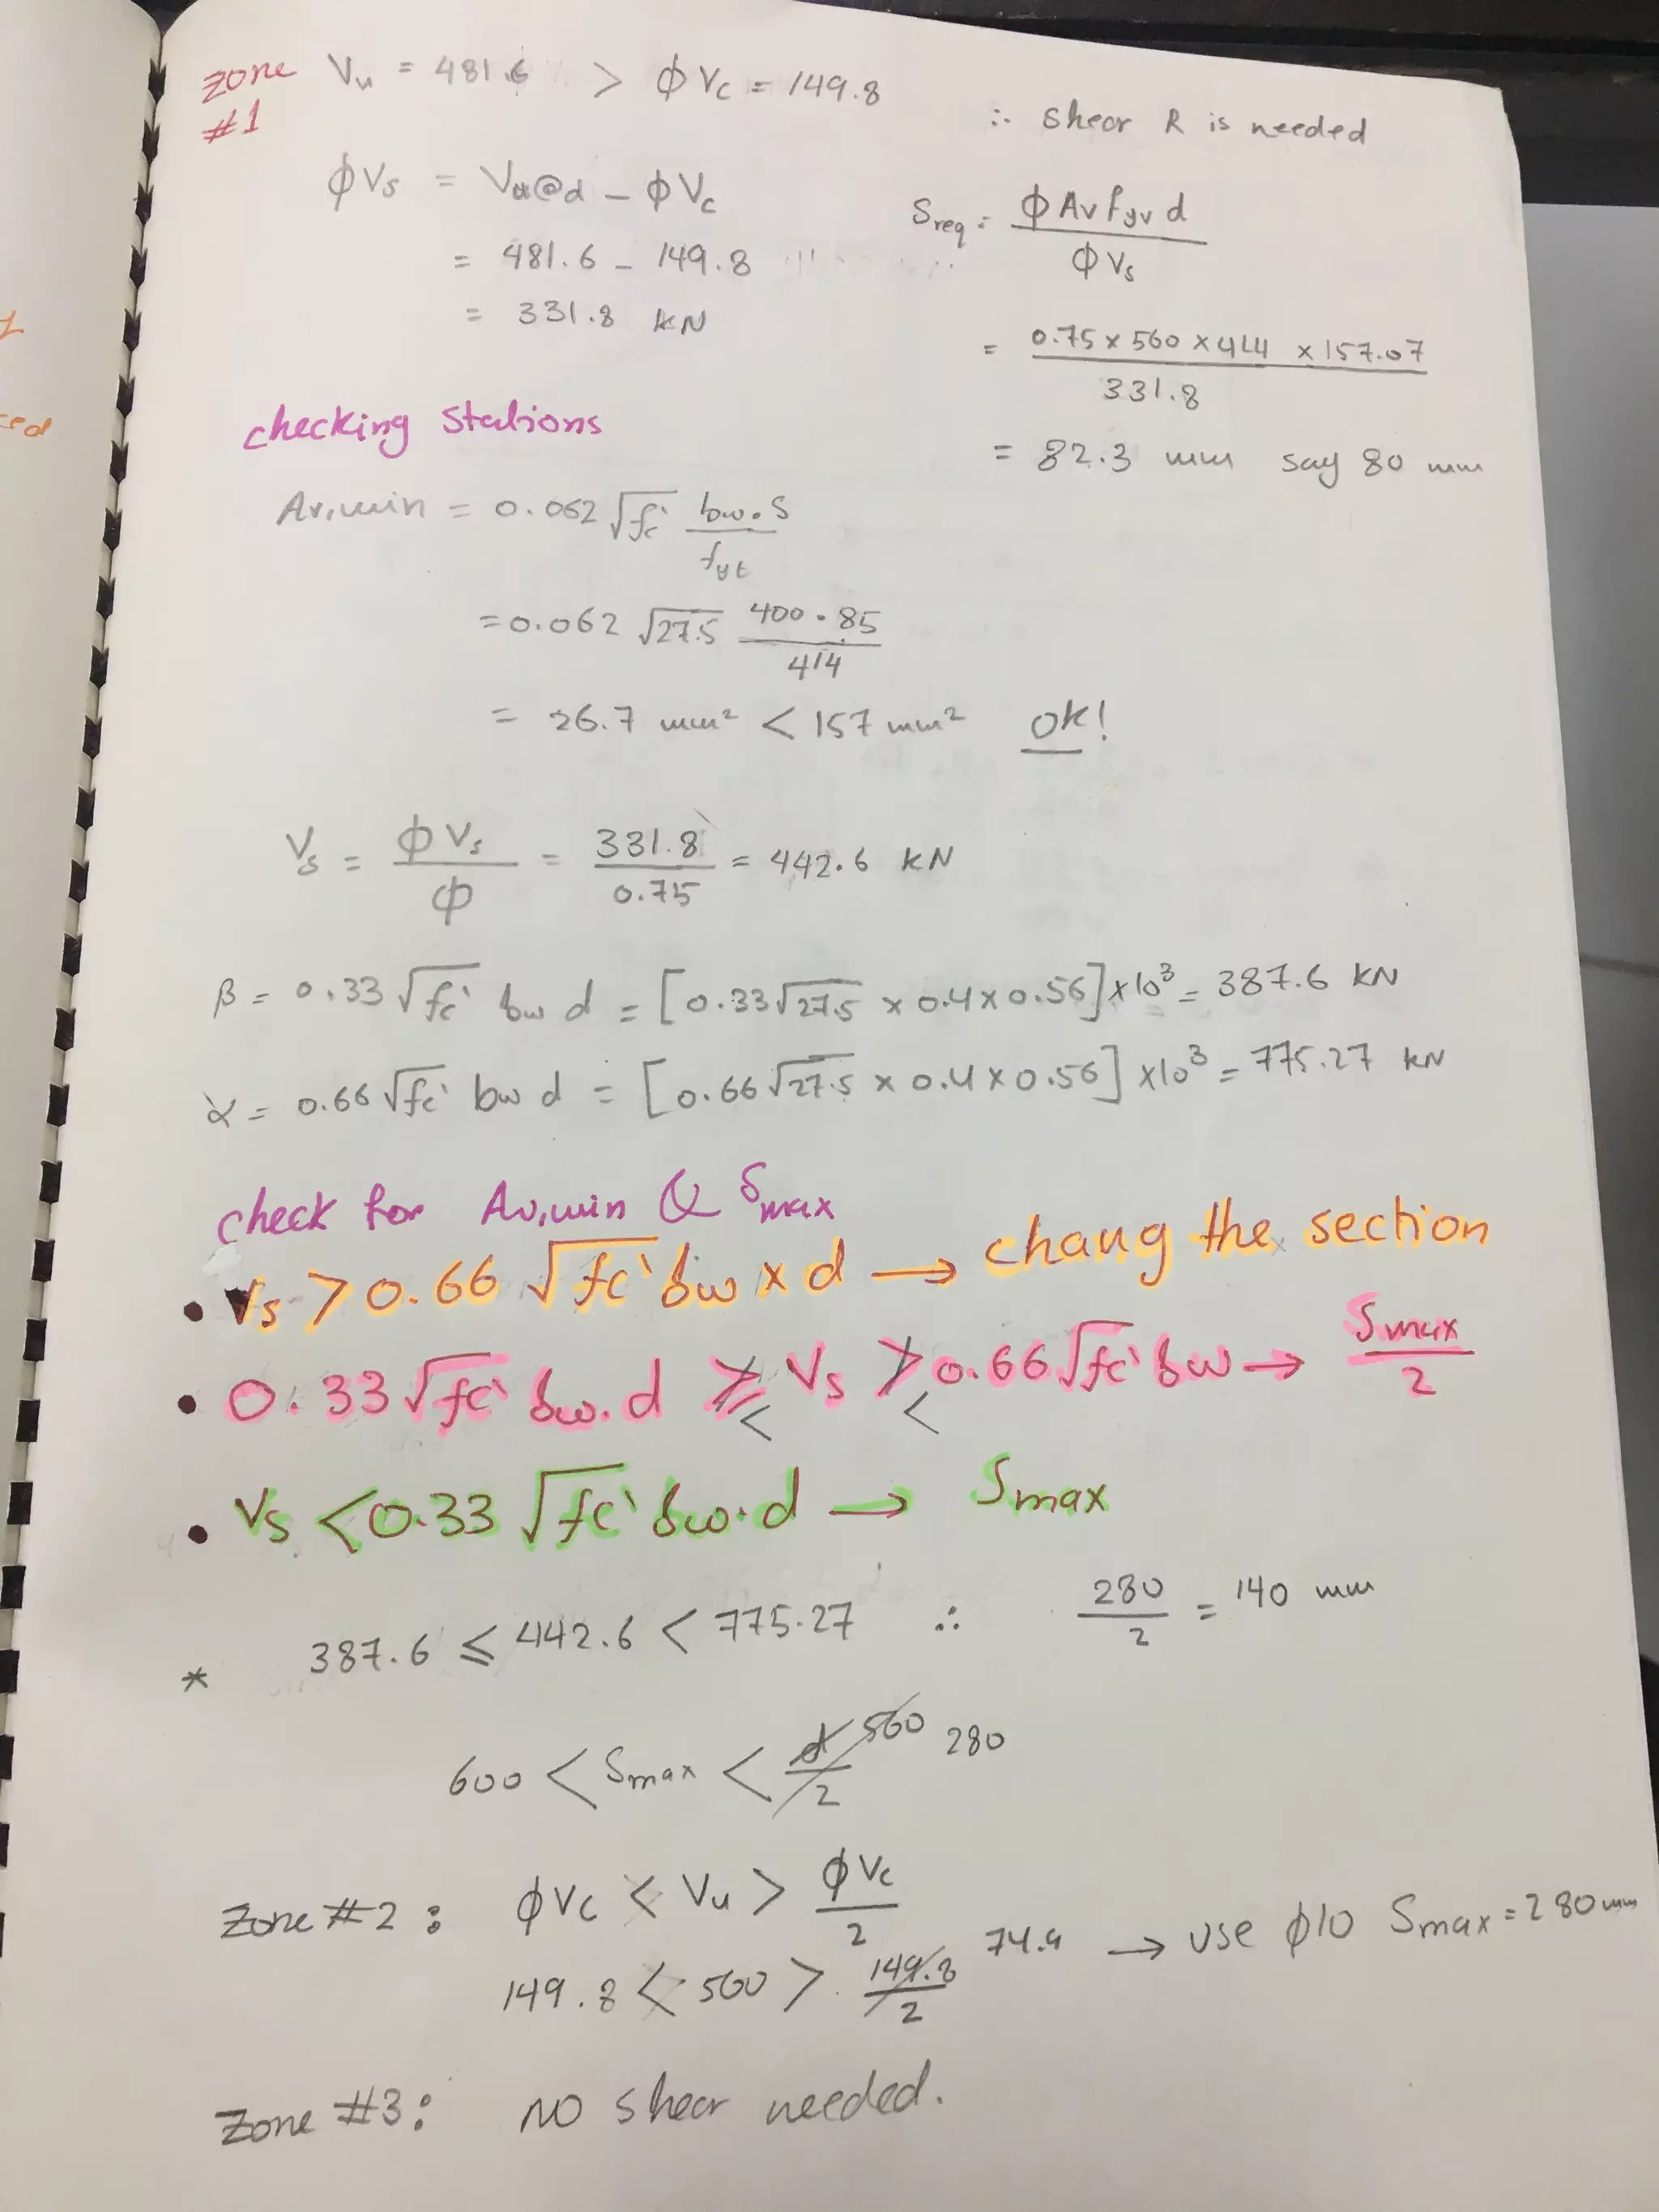 zone Vu = 481.6 > ϕVc = 149.8
#1
∴ shear R is needed
ϕVs = Vu@d - ϕVc
= 481.6 - 149.8
= 331.8 kN
Sreq = ϕ Av fyv d / ϕ Vs
= 0.75 x 560 x 414 x 157.07 / 331.8
= 82.3 mm say 80 mm
checking Stations
Av,min = 0.062 √fc' bw.S / fyt
= 0.062 √27.5 400 . 85 / 414
= 26.7 mm² < 157 mm² OK!
Vs = ϕVs / ϕ = 331.8 / 0.75 = 442.6 kN
β = 0.33 √fc' bw d = [0.33√27.5 x 0.4 x 0.56] x 10³ = 387.6 kN
α = 0.66 √fc' bw d = [0.66 √27.5 x 0.4 x 0.56] x 10³ = 775.27 kN
check for Av,min & Smax
• Vs > 0.66 √fc' bw x d → chang the section
• 0.33 √fc' bw.d ≥ Vs > 0.66 √fc' bw → Smax / 2
< <
• Vs < 0.33 √fc' bw.d → Smax
* 387.6 ≤ 442.6 < 775.27 ∴ 280 / 2 = 140 mm
600 < Smax < d 560 / 2 280
Zone #2 : ϕVc < Vu > ϕVc / 2
149.8 < 500 > 149.8 / 2 74.9 → use ϕ10 Smax = 280 mm
Zone #3 : NO shear needed.